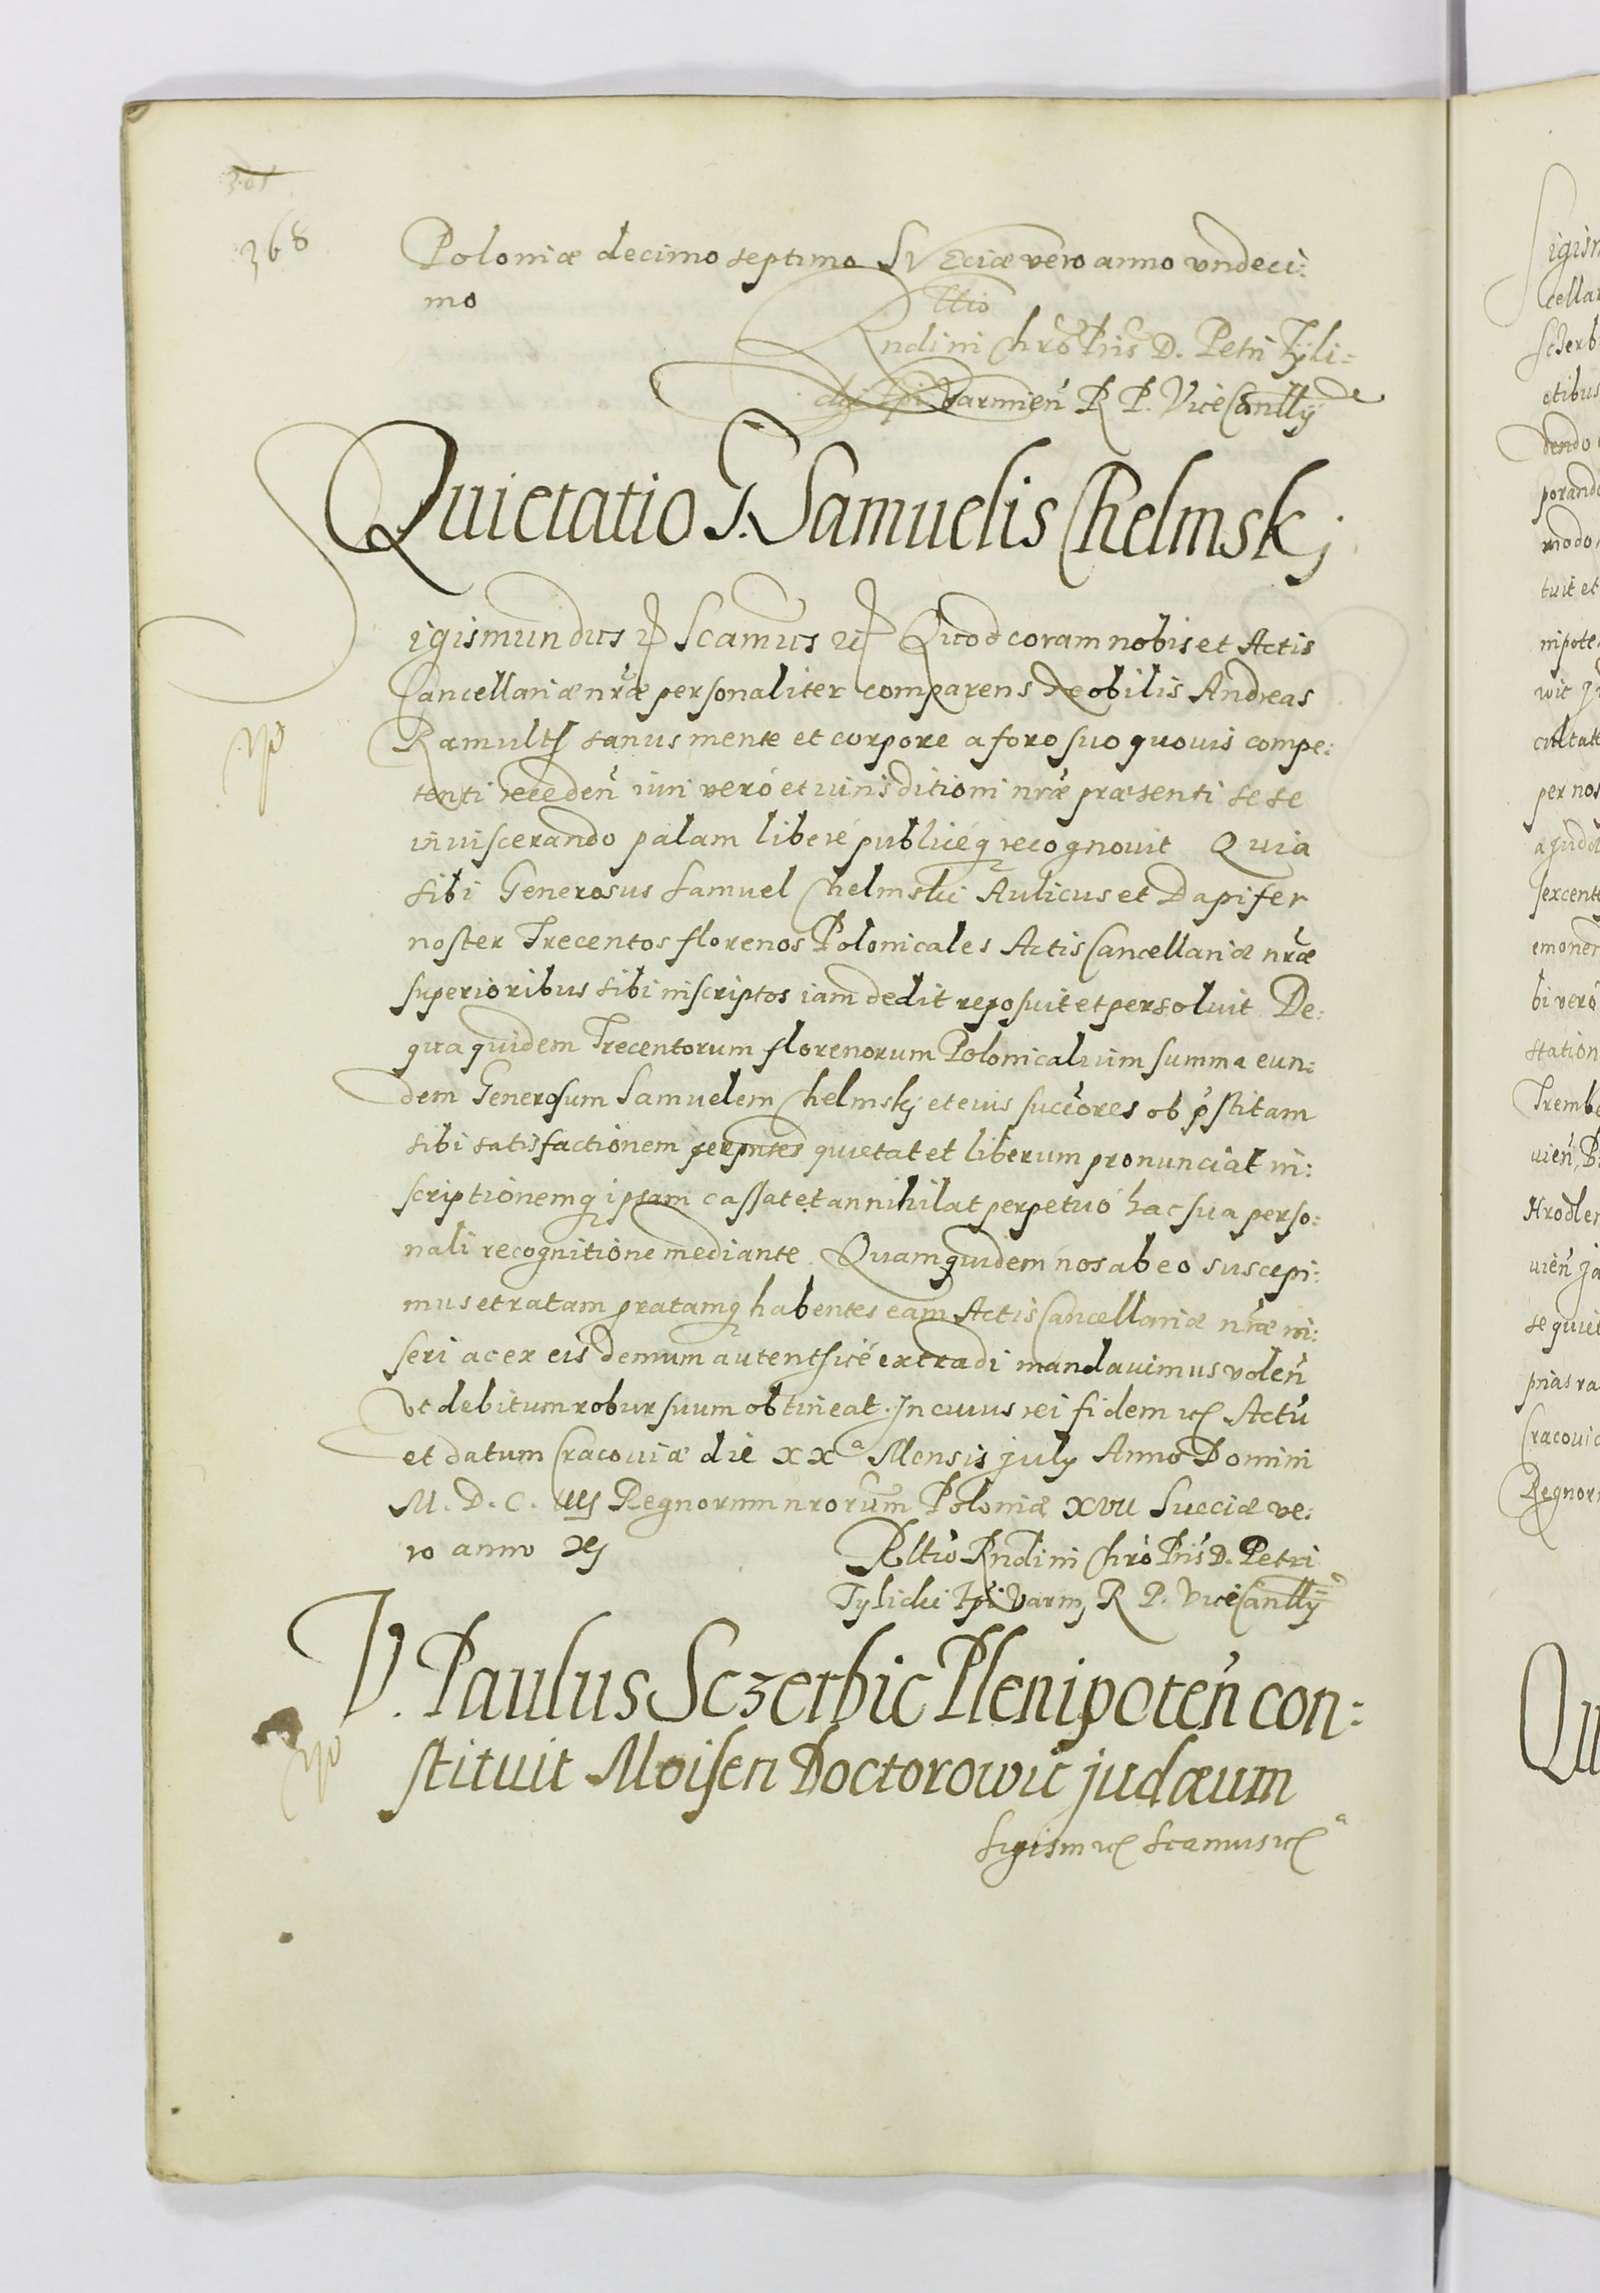 368
Poloniæ decimo septimo Sveciæ vero anno vndeci:
mo
Rltio
Rndi in Chrõ Pris D. Petri Tyli=
cki Epi Varmien̄ R P. ViceCanllÿ
Quietatio G. Samuelis Chelmskj
Sigismundus etc Scamus etc Quod coram nobis et Actis
Cancellariæ nr̃æ personaliter comparens Nobilis Andreas
Ramult sanus mente et corpore a foro suo quouis compe:
tenti receden̄ iuri verò et iurisditioni nr̃æ præsenti se se
inuiscerando palam liberé publicéq recognouit Quia
sibi Generosus Samuel Chelmski Aulicus et Dapifer
noster Trecentos florenos Polonicales Actis Cancellariæ nr̃æ
superioribus sibi inscriptos iam dedit reposuit et persoluit De
qua quidem Trecentorum florenorum Polonicalium summa eun:
dem Generosum Samuelem Chelmskj et eius succ̃ores ob p̃stitam
sibi satisfactionem per pntes quietat et liberum pronunciat in:
scriptionemq ipsam cassat et annihilat perpetuó hac sua perso:
nali recognitione mediante Quam quidem nos ab eo suscepi:
mus et ratam gratamq habentes eam Actis Cancellariæ nr̃æ in:
seri ac ex eis demum autenticé extradi mandauimus volen̄
vt debitum robur suum obtineat. In cuius rei fidem etc Actū
et datum Cracouiæ die XXa Mensis july Anno Domini
M. D. C. iiij Regnorum nrorum Poloniæ XVII Sueciæ ve:
ro anno xj
Rltio Rndi in Chrõ Pris D. Petri
Tylicki Epi Varm R P. ViceCanllÿ
V. Paulus Sczerbic Plenipoten̄ con:
stituit Moisen Doctorowic judæum
Sigism etc Scamus etc a